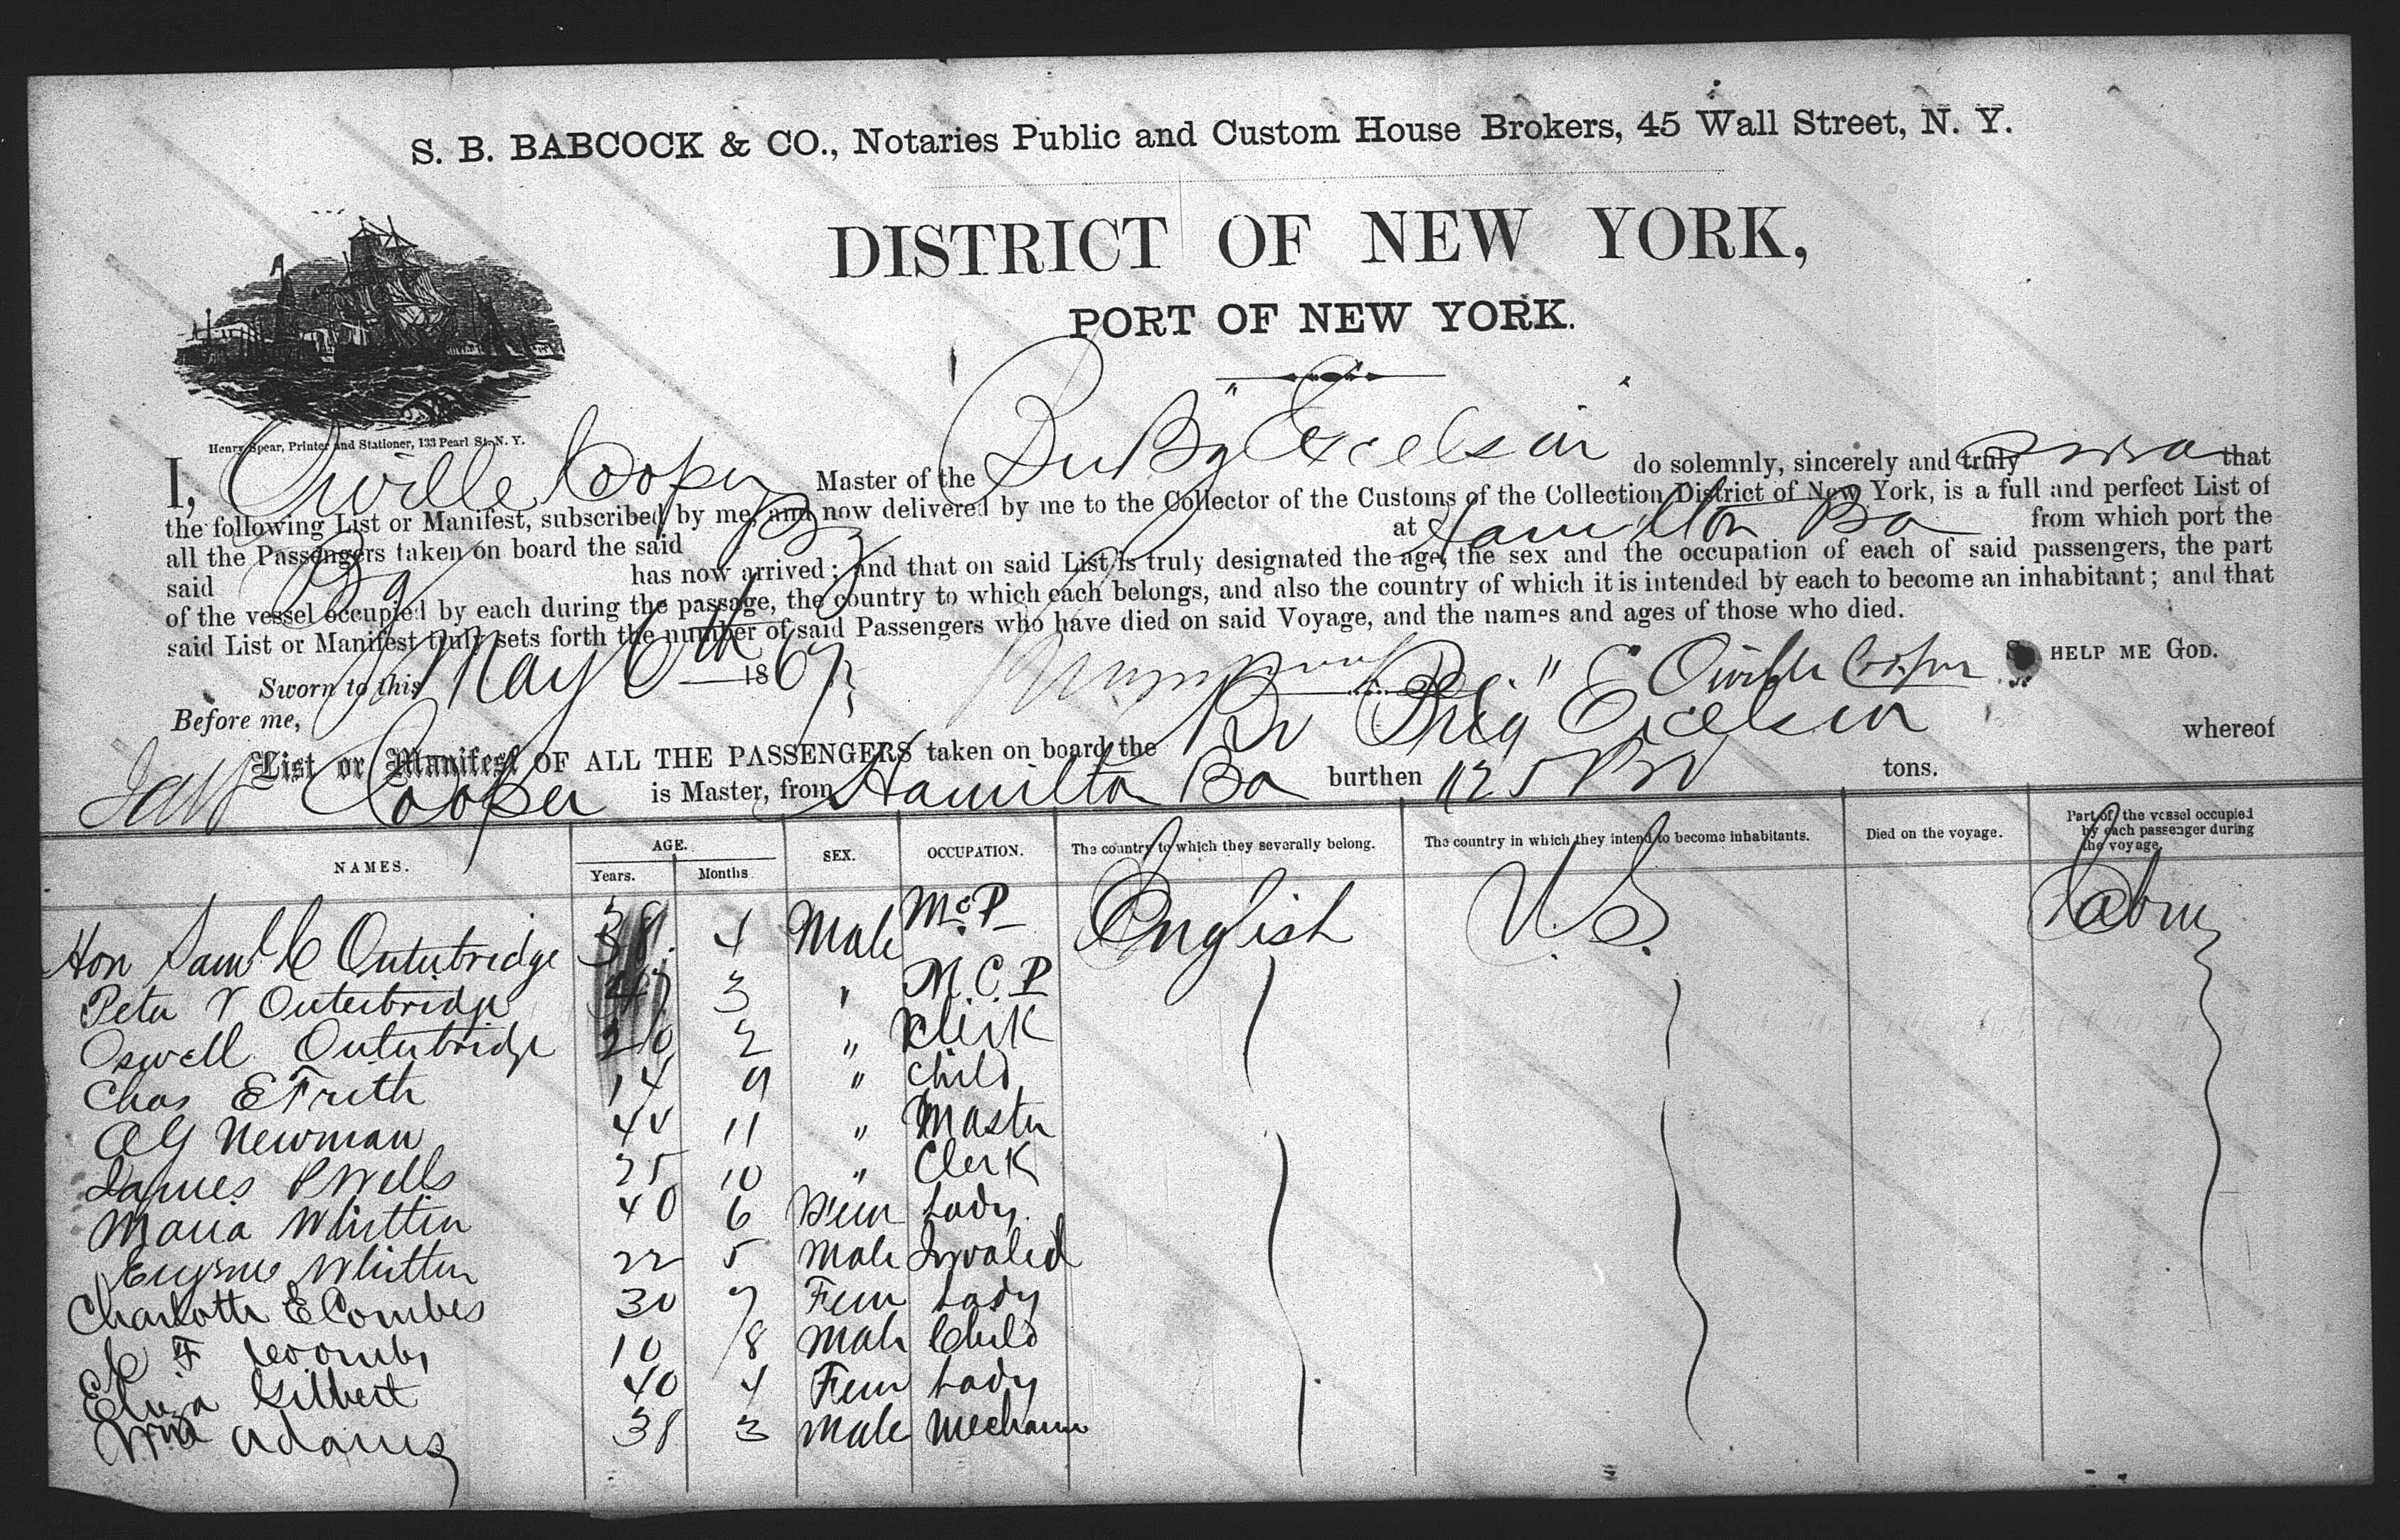 S. B. BABCOCK & CO., Notaries Public and Custom House Brokers, 45 Wall Street, N. Y.
DISTRICT OF NEW YORK,
PORT OF NEW YORK.
Henry Spear, Printer and Stationer, 133 Pearl St. N. Y.
I, Orville Cooper Master of the Br Bg "Excelsior" do solemnly, sincerely and truly that
the following List or Manifest, subscribed by me, and now delivered by me to the Collector of the Customs of the Collection District of New York, is a full and perfect List of
all the Passengers taken on board the said Bg at Hamilton Ba from which port the
said Bg has now arrived; and that on said List is truly designated the age, the sex and the occupation of each of said passengers, the part
of the vessel occupied by each during the passage, the country to which each belongs, and also the country of which it is intended by each to become an inhabitant; and that
said List or Manifest truly sets forth the number of said Passengers who have died on said Voyage, and the names and ages of those who died.
Sworn to this May 6th 1867 Orville Cooper So HELP ME GOD.
Before me,
List or Manifest OF ALL THE PASSENGERS taken on board the Br Brig "Excelsior whereof
Cooper is Master, from Hamilton Ba burthen 125 tons.
NAMES. AGE. Years. Months SEX. OCCUPATION. The country to which they severally belong. The country in which they intend to become inhabitants. Died on the voyage. Part of the vessel occupied by each passenger during the voyage.
Hon Saml C Outerbridge 38 4 Male McP English U.S. Cabin
Peter T Outerbridge 47 3 " M.C.P
Oswell Outerbridge 20 2 " Clerk
Chas E Frith 14 9 " Child
A G Newman 44 11 " Master
James P Wells 25 10 " Clerk
Maria Whitten 40 6 Fem Lady
Eugene Whitten 22 5 Male Invalid
Charlotte E Combes 30 7 Fem Lady
C F Coombs 10 8 Male Child
Eliza Gilbert 40 4 Fem Lady
Wm Adams 38 3 Male Mechanic